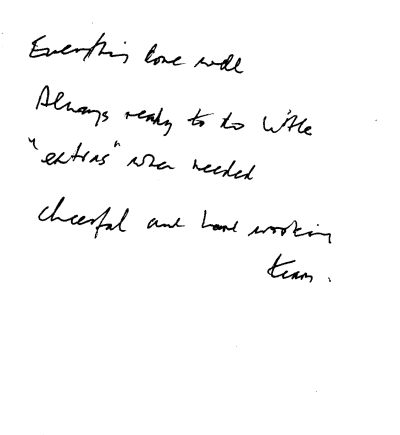 Everything done well
Always ready to do little
"extras" when needed
Cheerful and hard working
team.